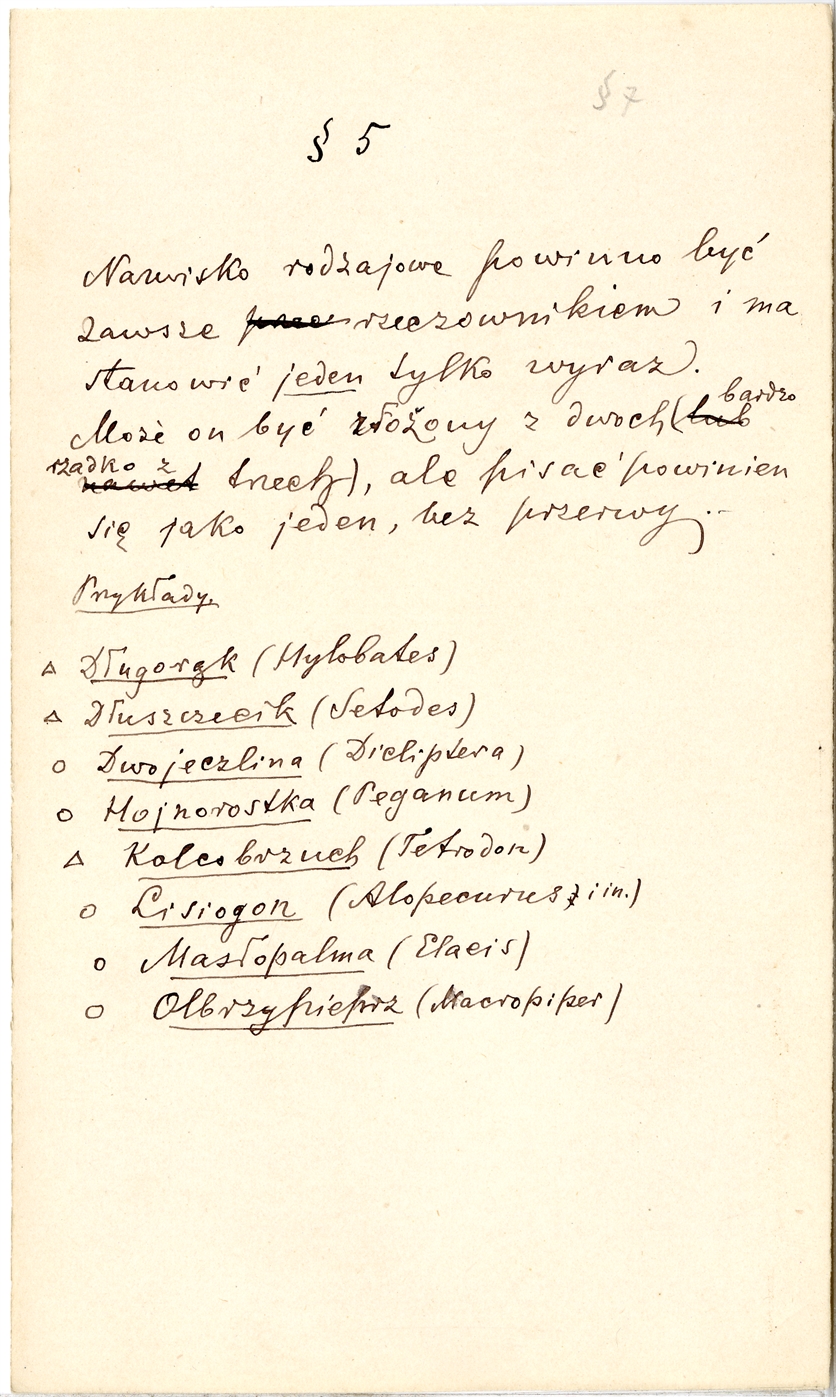 § 7
§ 5
Nazwisko rodzajowe powinno być
zawsze rzeczownikiem i ma
stanowić jeden tylko wyraz.
bardzo
Może on być złożony z dwóch (lub
rzadko z
nawet trzech), ale pisać powinien
się jako jeden, bez przerwy.
Przykłady.
△ Długoręk (Hylobates)
△ Dłuszczecik (Setodes)
○ Dwojeczlina (Dicliptera)
○ Hojnorostka (Peganum)
△ Kolcobrzuch (Tetrodon)
○ Lisiogon (Alopecurus i in.)
○ Masłopalma (Elaeis)
○ Olbrzypieprz (Macropiper)